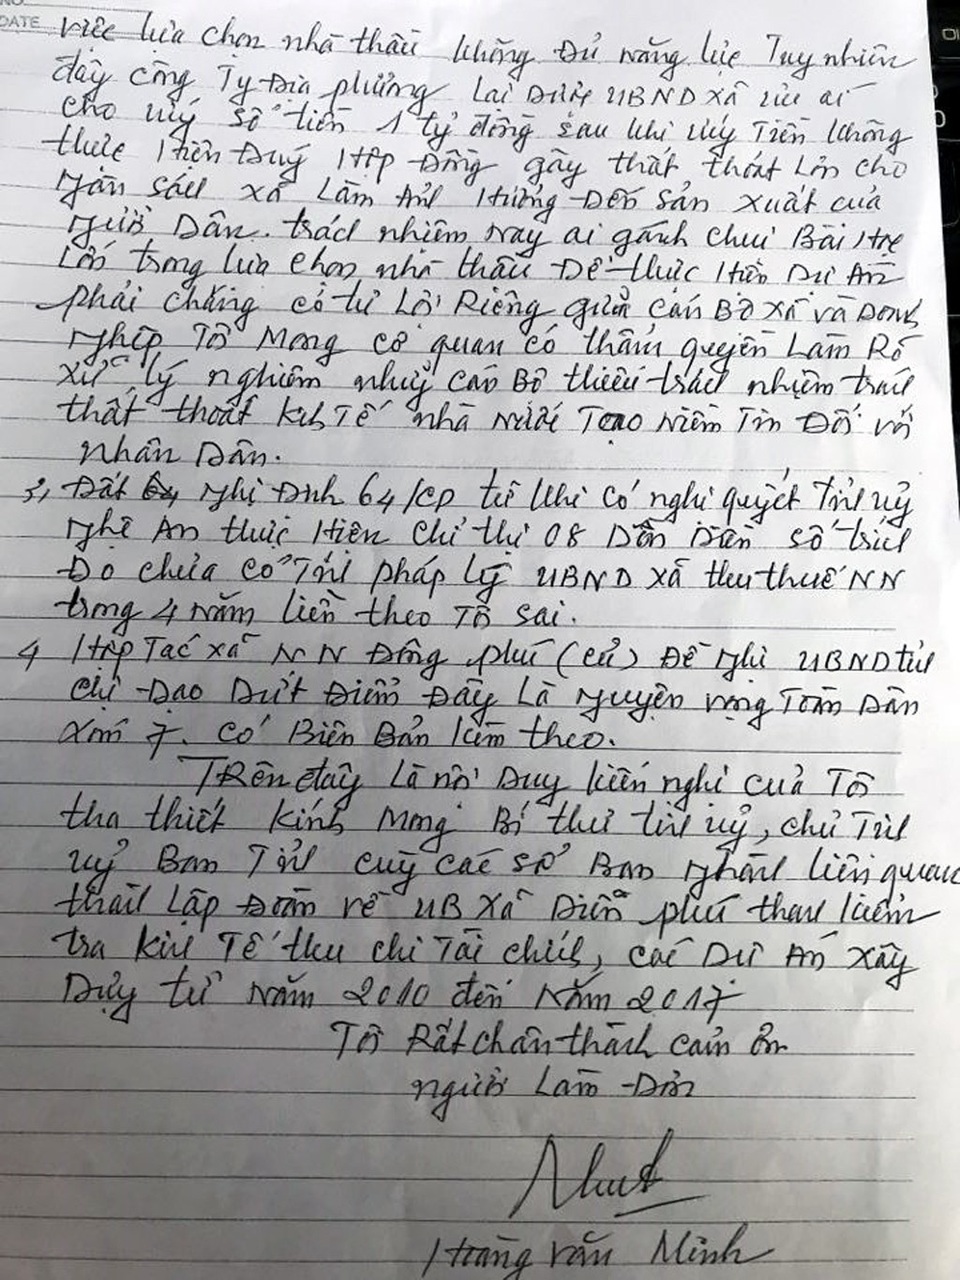 DATE
việc lựa chọn nhà thầu không Đủ năng lực Tuy nhiên
đây công Ty Địa phương Lại Được UBND xã ưu ái
cho ứng số tiền 1 tỷ đồng sau khi ứng Tiền không
thực Hiện Đúng Hợp Đồng gây thất thoát Lớn cho
ngân sách xã Làm Ảnh Hưởng Đến Sản xuất của
người Dân. trách nhiệm này ai gánh chưi Bài Học
Lớn trong lựa chọn nhà thầu Để thực Hiện Dự Án
phải chăng có tư Lợi Riêng giữa cán Bộ xã và Doanh
nghiệp Tôi Mong cơ quan có thẩm quyền Làm Rõ
xử lý nghiêm những cán Bộ thiếu trách nhiệm tránh
thất thoát kinh Tế nhà nước Tạo niềm Tin Đối với
nhân Dân.
3, Đất nghị Định 64/CP từ khi có nghị quyết Tỉnh uỷ
nghệ An thực Hiện chỉ thị 08 Dồn Điền số trích
Đo chưa có Tính pháp lý UBND xã thu thuế NN
trong 4 năm liền theo Tôi sai.
4 Hợp Tác xã NN Đông phú (cũ) Đề nghị UBND tỉnh
chỉ Đạo Dứt Điểm Đây Là nguyện vọng Toàn Dân
xóm 7. có Biên Bản kèm theo.
TRên đây Là nội Duy kiến nghị của Tôi
tha thiết kính Mong Bí thư tỉnh uỷ, chủ Tịch
uỷ Ban Tỉnh cùng các sở Ban nghành liên quan
thành Lập Đoàn về UB xã Diễn phú thanh kiểm
tra kinh Tế thu chi Tài chính, các Dự Án xây
Dựng từ năm 2010 đến năm 2017
Tôi Rất chân thành cảm ơn
người Làm Đơn
Hoàng văn Minh